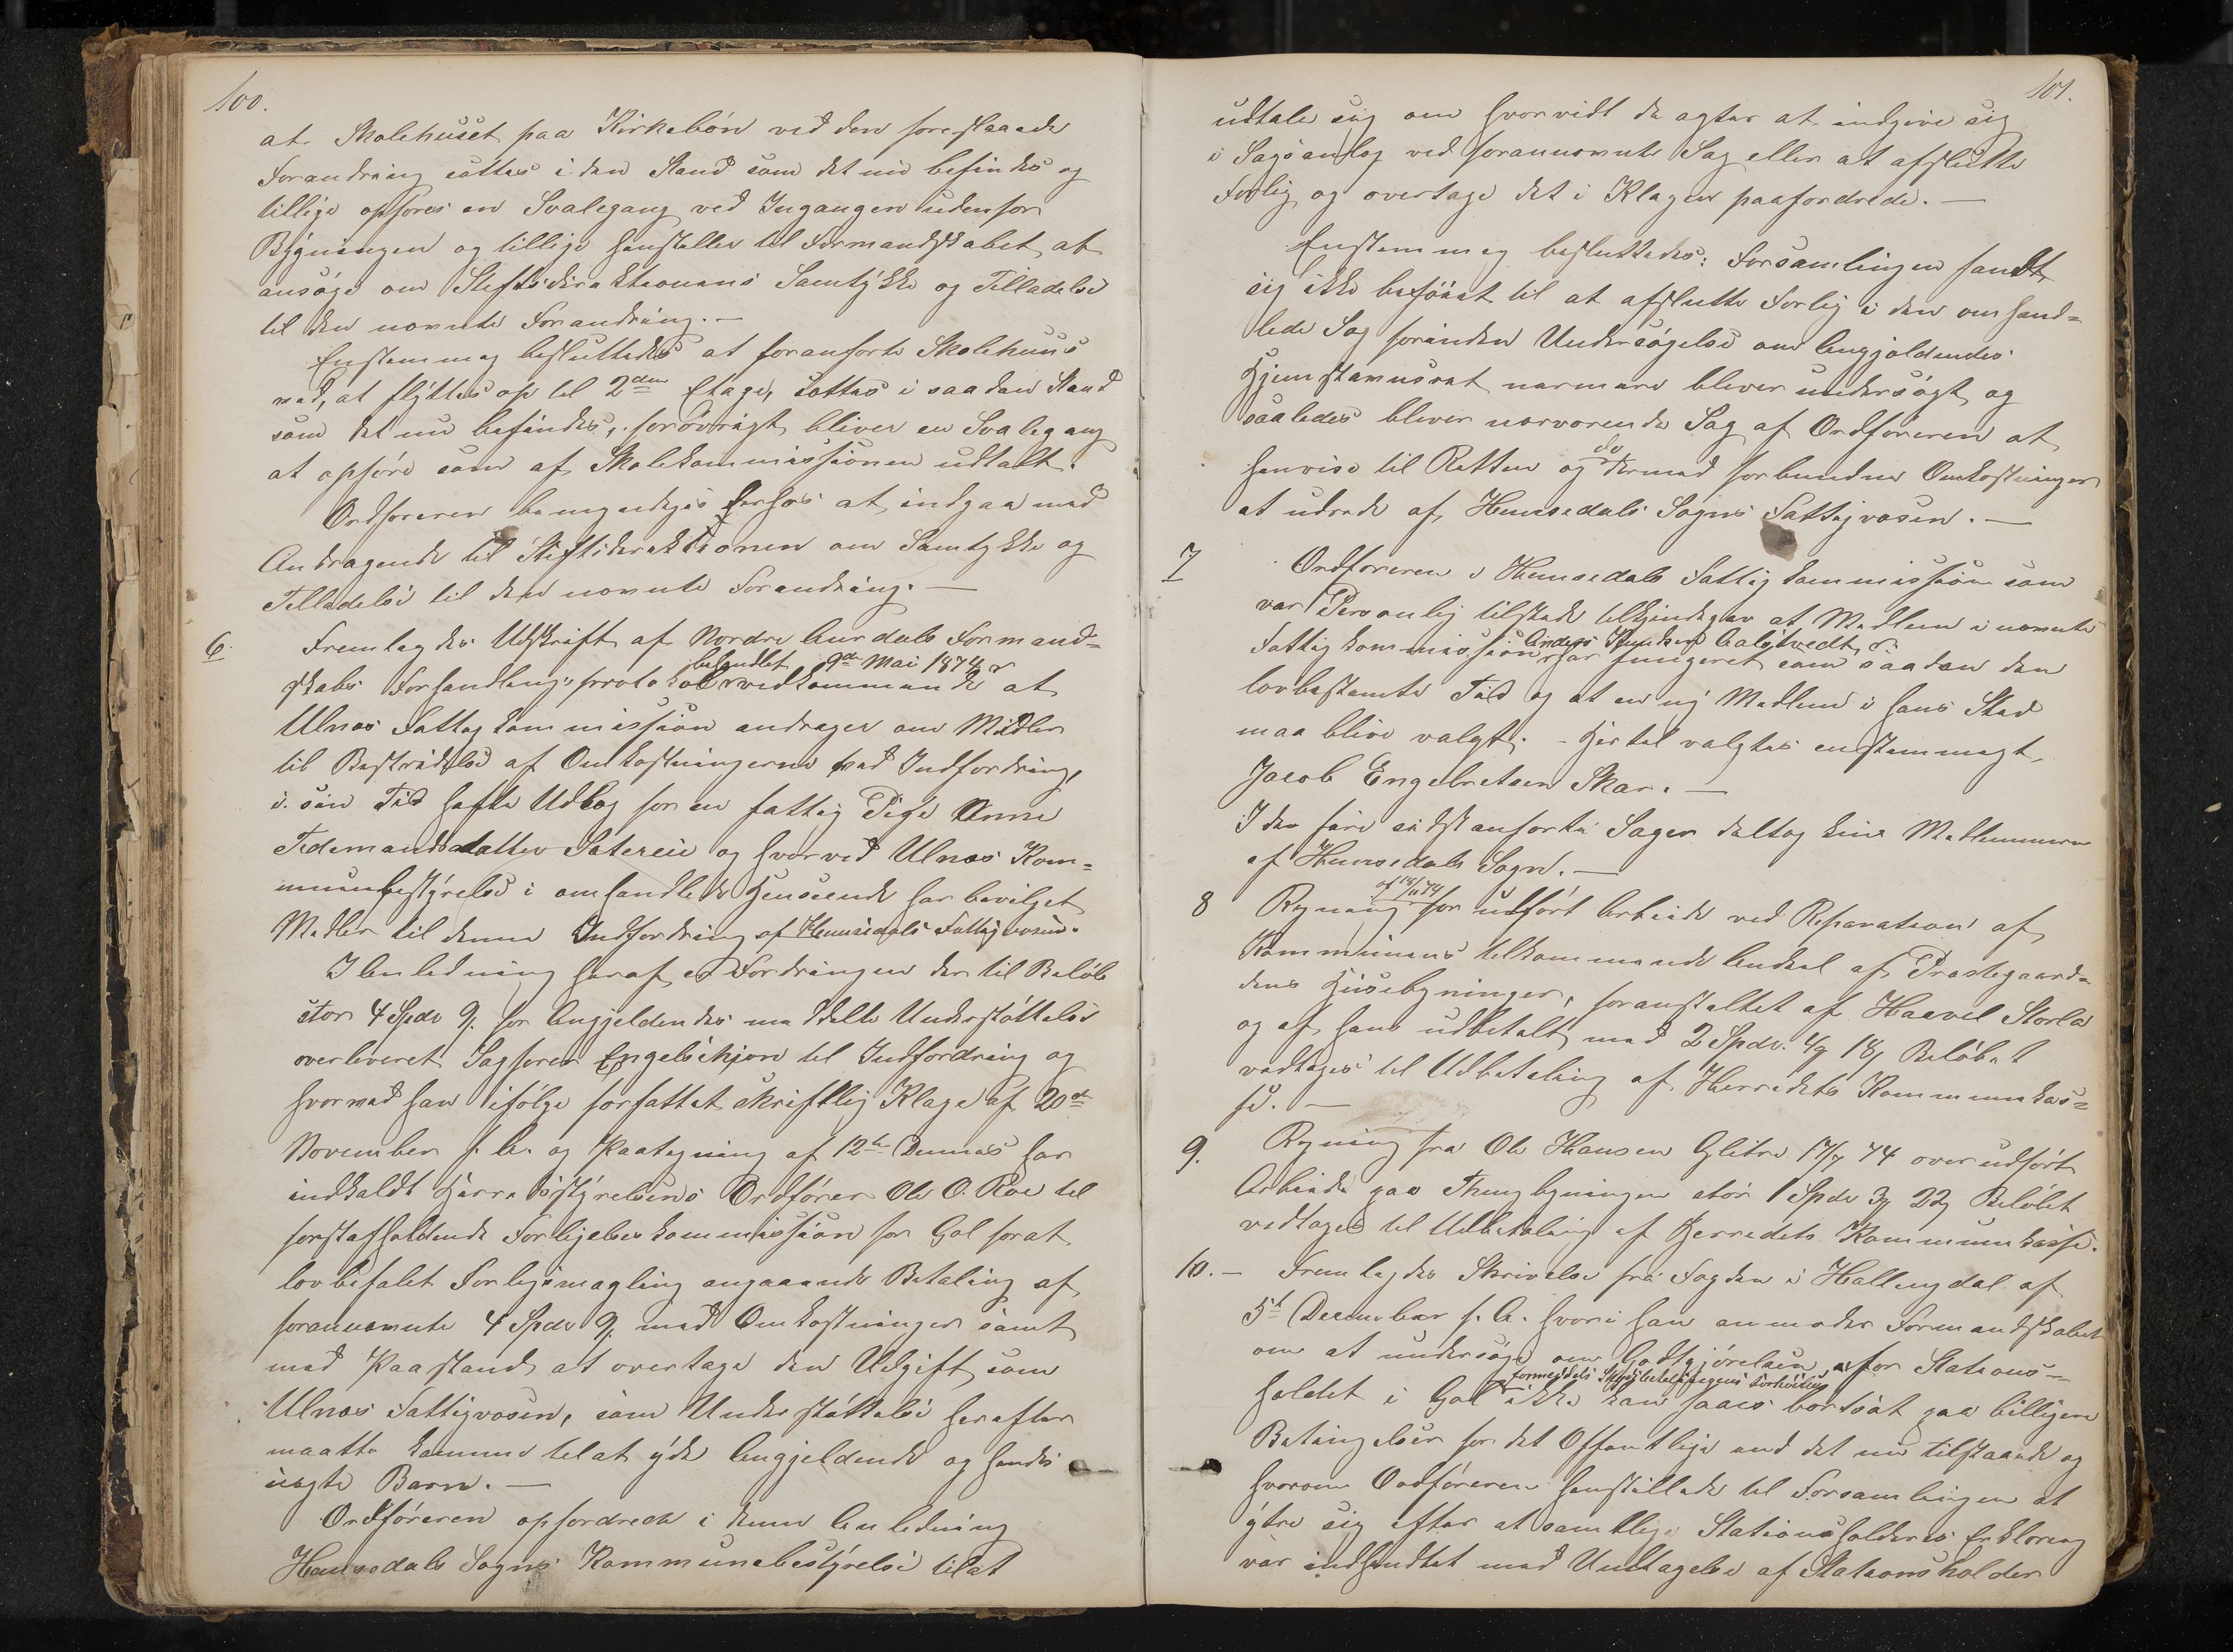 100.
at Skolehuset paa Kirkebøn ved den foreslaaede
Forandring sættes i den Stand som det nu befindes og
tillige opføres en Svalegang ved Ingangen udenfor
Bygningen og tillige henstiller til Formandskabet at
ansøge om Stiftsdirektionens Samtykke og Tilladelse
til den nævnte Forandring. —
Enstemmig besluttedes at foranførte Skolehuus
ved, at flyttes op til 2den Etage, sættes i saadan Stand
som det nu befindes, forøvrigt bliver en Svalegang
at opføre som af Skolekommissionen udtalt.
Ordføreren bemyndiges derhos at indgaa med
Andragende til Stiftsdirektionen om Samtykke og
Tilladelse til den nævnte Forandring. —
6. Fremlagdes Udskrift af Nordre Aurdals Formand=
behandlet 9de Mai 1874
skabs Forhandlingsprotokol vedkommende at
Ulnæs Fattigkommission andrager om Midler
til Bestridelse af Omkostningerne ved Indfordring,
i sin Tid havte Udlæg for en fattig Pige Anne
Tidemandsdatter Sætereie og hvorved Ulnæs Kom=
munebestyrelse i omhandlede Henseende har bevilget
Midler til denne Indfordring af Hemsedals Fattigvæsen.
I Anledning heraf er Fordringen der til Beløb
stor 4 Spdr 9. for Angjeldendes meddelte Understøttelse
overleveret Sagfører Engelschjøn til Indfordring og
hvormed han ifølge forfattet skriftlig Klage af 20de
November f. A. og Paategning af 12te Dennes har
indkaldt Herredsstyrelsens Ordfører Ole O. Roe til
førstafholdende Forligelseskommission for Gol forat
lovbefalet Forligsmægling angaaende Betaling af
forannævnte 4 Spdr 9. med Omkostninger samt
med Paastand at overtage den Udgift som
Ulnæs Fattigvæsen, som Understøttelse herefter
maatte komme til at yde Angjeldende og hendes
uægte Barn. —
Ordføreren opfordrede i denne Anledning
Hemsedals Sogns Kommunebestyrelse til at
101.
udtale sig om hvorvidt de agter at indgive sig
i Sagsanlæg ved forannævnte Sag eller at afslutte
Forlig og overtage det i Klagen paafordrede. —
Enstemmig besluttedes: Forsamlingen fandt
sig ikke beføiet til at afslutte Forlig i den omhand=
lede Sag forinden Undersøgelse om Angjældendes
Hjemstavnsret nærmere bliver undersøgt og
saaledes bliver nærværende Sag af Ordføreren at
de
henvise til Retten og dermed forbundne Omkostninger
at udrede af Hemsedals Sogns Fattigvæsen. —
7 Ordføreren i Hemsedals Fattigkommission som
var Personlig tilstede tilkjendegav at Medlem i nævnte
Anders Knudsen
Fattigkommission har fungeret som saadan den
lovbestemte Tid og at en ny Medlem i hans Sted
maa blive valgt. - Hertil valgtes enstemmigt
Jacob Engebretsen Skar. —
I de fire sidstanførte Sager deltog kun Medlemmerne
af Hemsedals Sogn. —
af 18/11 74
8 Regning for udført Arbeide ved Reparation af
Kommunens tilkommende Andeel af Præstegaar=
dens Huusebygninger, foranstaltet af Haavel Storla
og af ham udbetalt med 2 Spdr. 4 18 Beløbet
vedtages til Udbetaling af Herredets Kommunekas=
se. —
9. Regning fra Ole Hansen Glitre 17/7 74 over udført
Arbeide paa Thingbygningen stor 1 Spdr 3 22 Beløbet
vedtages til Udbetaling af Herredets Kommunekasse.
10. — Fremlagdes Skrivelse fra Fogden i Hallingdal af
5te December f. A. hvori han anmoder Formandskabet
om at undersøge om Godtgjørelsen for Stations=
formedelst Skydsbetalingens Forhøielse
holdet i Gol ikke kan faaes bortsat paa billigere
Betingelser for det Offentlige end det nu tilstaaede og
hvorom Ordføreren henstillede til Forsamlingen at
ytre sig efter at samtlige Stationsholderes Erklæring
var indhendtet med Undtagelse af Stationsholder